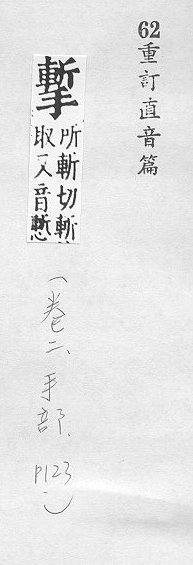 62重訂直音篇
㨻
所斬切斬
取又音慙
(卷二、手部、P123)